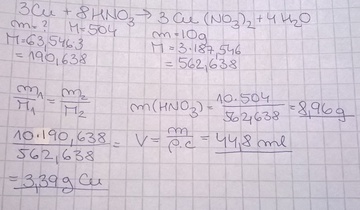 3Cu + 8HNO₃ → 3Cu(NO₃)₂ + 4H₂O
m = ? M = 504 m = 10g
M = 63,546·3 M = 3·187,546
= 190,638 = 562,638
m₁/M₁ = m₂/M₂
m(HNO₃) = 10·504/562,638 = 8,96g
10·190,638/562,638 = V = m/ρ·c = 44,8 ml
= 3,39g Cu